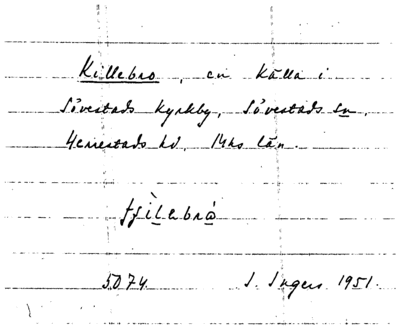 Killebro, en källa i
Sövestads kyrkby, Sövestads sn,
Herrestads hd, Mhs län.
tʃìlebrò
5074. I. Ingers 1951.